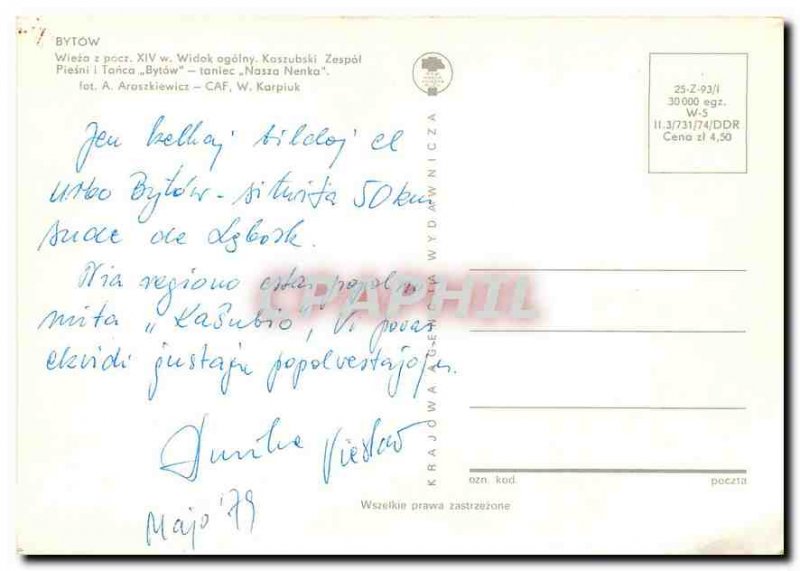 BYTÓW
Wieża z pocz. XIV w. Widok ogólny. Kaszubski Zespół
Pieśni i Tańca „Bytów” – taniec „Nasza Nenka”.
fot. A. Araszkiewicz – CAF, W. Karpiuk
25-Z-93/I
30 000 egz.
W-5
II.3/731/74/DDR
Cena zł 4,50
Jen kelkaj bildoj el
urbo Bytów - situita 50 km
sude de Lębork.
Nia regiono estas popol no
mita „Kaŝubio", Vi povas
ekvidi ĝustajn popolvestaĵojn.
Amike Vieslav
Majo '79
KRAJOWA AGENCJA WYDAWNICZA
CPAPHIL
ozn. kod. poczta
Wszelkie prawa zastrzeżone